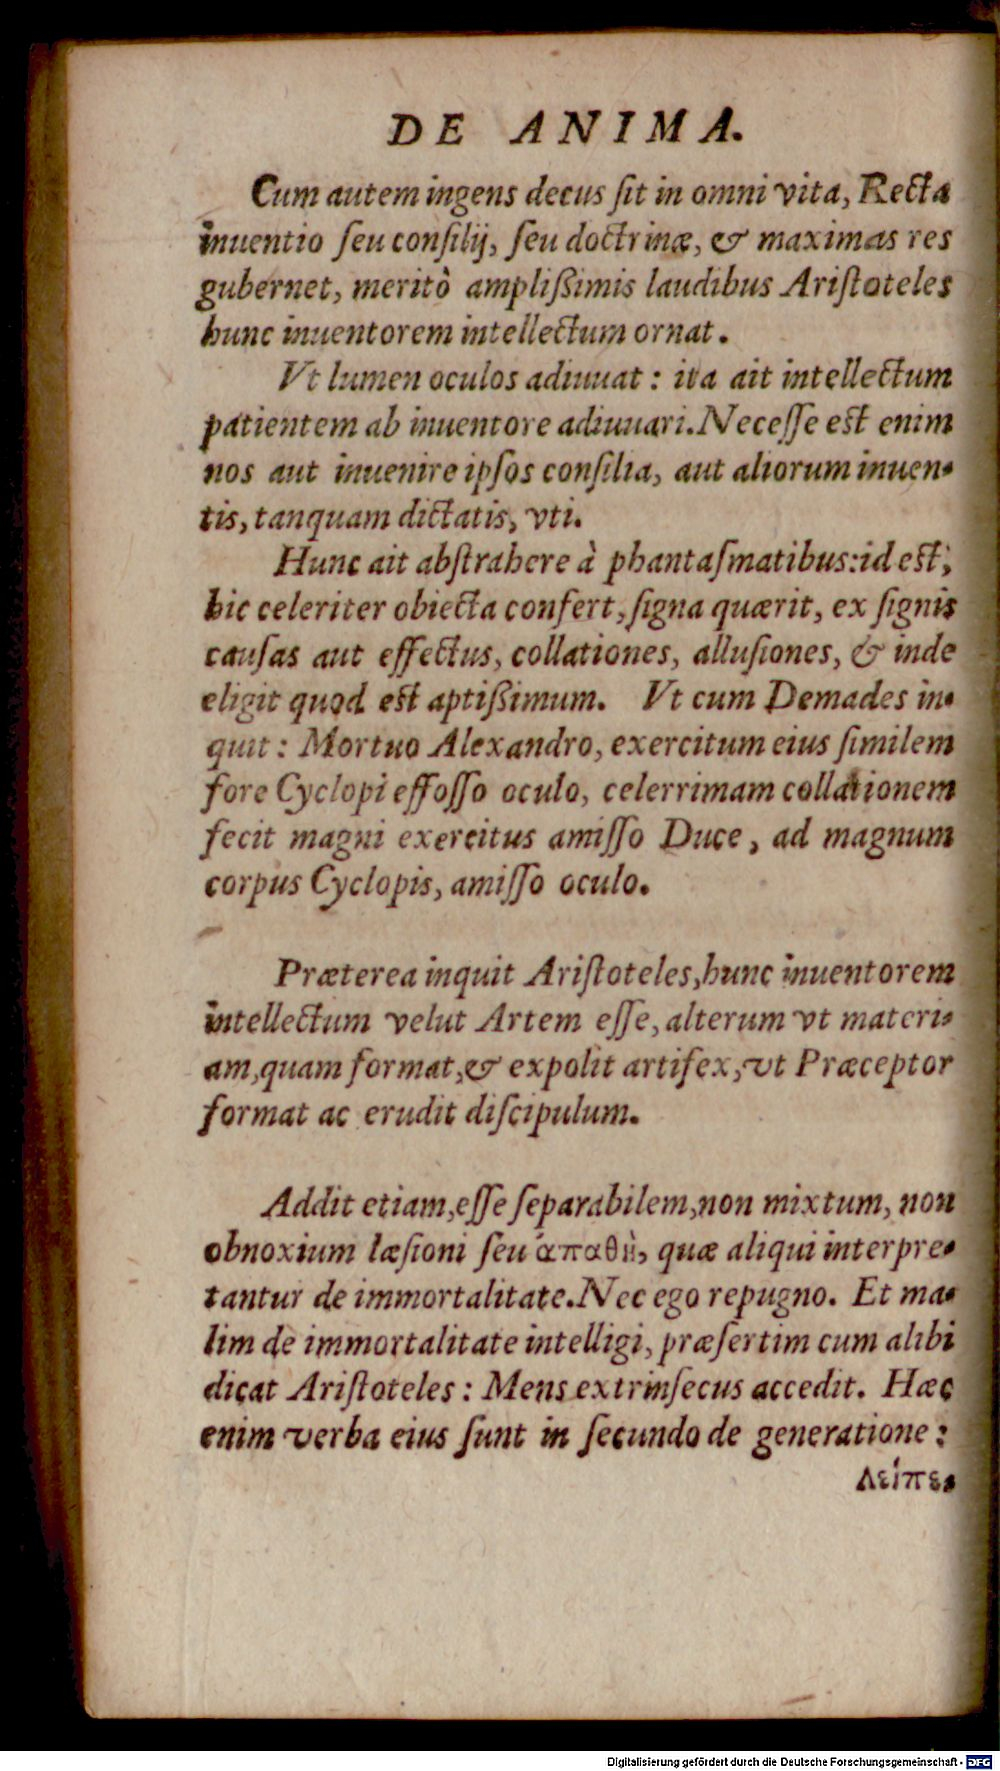 DE ANIMA.
Cum autem ingens decus ſit in omni vita, Recta
inuentio ſeu conſilij, ſeu doctrinæ, & maximas res
gubernet, meritò ampliſsimis laudibus Ariſtoteles
hunc inuentorem intellectum ornat.
Vt lumen oculos adiuuat: ita ait intellectum
patientem ab inuentore adiuuari. Neceſſe eſt enim
nos aut inuenire ipſos conſilia, aut aliorum inuen-
tis, tanquam dictatis, vti.
Hunc ait abſtrahere à phantaſmatibus: id eſt,
hic celeriter obiecta confert, ſigna quærit, ex ſignis
cauſas aut effectus, collationes, alluſiones, & inde
eligit quod eſt aptiſsimum. Vt cum Demades in-
quit: Mortuo Alexandro, exercitum eius ſimilem
fore Cyclopi effoſſo oculo, celerrimam collationem
fecit magni exercitus amiſſo Duce, ad magnum
corpus Cyclopis, amiſſo oculo.
Præterea inquit Ariſtoteles, hunc inuentorem
intellectum velut Artem eſſe, alterum vt materi-
am, quam format, & expolit artifex, vt Præceptor
format ac erudit diſcipulum.
Addit etiam, eſſe ſeparabilem, non mixtum, non
obnoxium læſioni ſeu ἀπαθῆ, quæ aliqui interpre-
tantur de immortalitate. Nec ego repugno. Et ma-
lim de immortalitate intelligi, præſertim cum alibi
dicat Ariſtoteles: Mens extrinſecus accedit. Hæc
enim verba eius ſunt in ſecundo de generatione:
λείπε-
Digitalisierung gefördert durch die Deutsche Forschungsgemeinschaft - DFG